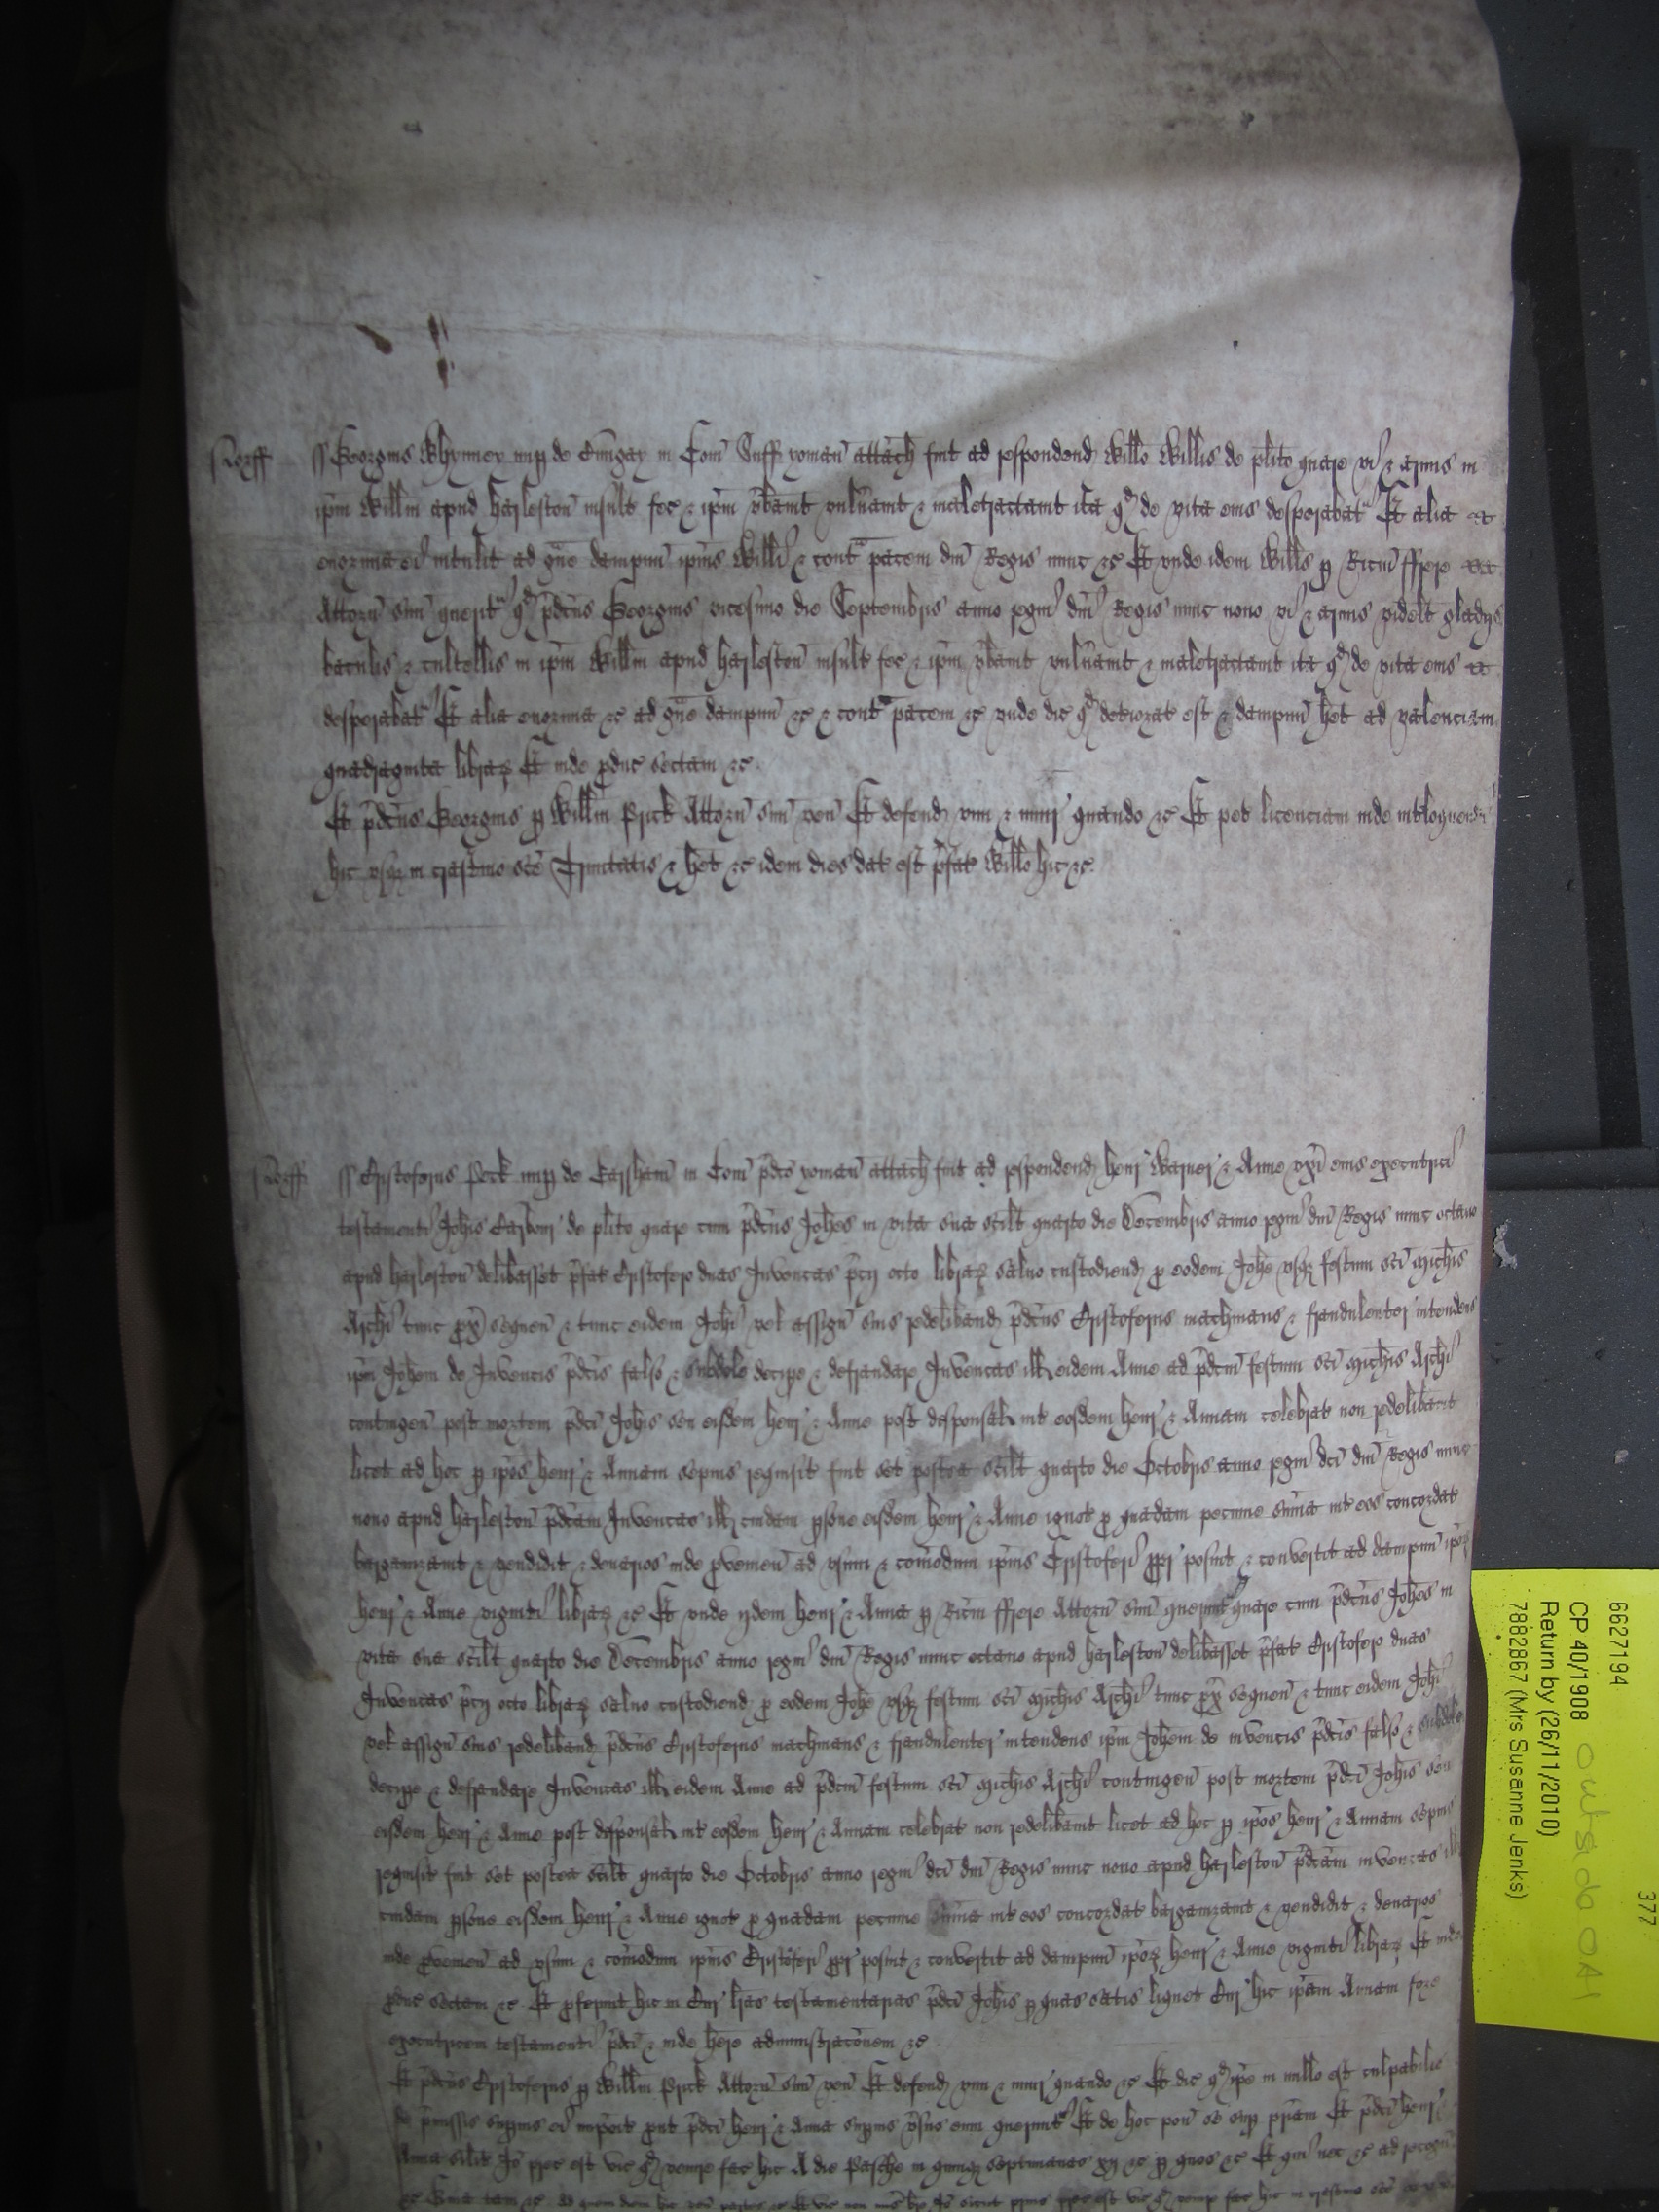 Norff ss Georgius Whynney nup de Bungay in Com Suff yoman attach fuit ad respondend Willo Willis de plito quare vi & armis in
ipm Willm apud Harleston insult fec & ipm vbavit vulnavit & maletractavit ita qd de vita eius desperabat Et alia
enormia ei intulit ad gve dampnu ipius Willi & contra pacem dni Regis nunc &c Et unde idem Wills p Ricm ffrere
Attorn suu querit qd pdcus Georgius vicesimo die Septembris anno regni dni Regis nunc nono vi & armis videlt gladijs
baculis & cultellis in ipm Willm apud Harleston insult fec & ipm vbavit vulnavit & maletractavit ita qd de vita eius
desperabat Et alia enormia &c ad gve dampnu &c & contra pacem &c unde dic qd deteriorat est & dampnu het ad valenciam
quadraginta librar Et inde produc sectam &c
Et pdcus Georgius p Willm Prick Attorn suu ven Et defend vim & iniur quando &c Et pet licenciam inde intloquendi
hic usq in crastino sce Trinitatis & het &c idem dies dat est pfat Willo hic &c
Norff ss Cristoferus Peck nup de Earsham in Com pdco yoman attach fuit ad respondend Henr Warner & Anne uxi eius executrici
testamenti Johis de plito quare cum pdcus Johes in vita sua scilt quarto die Decembris anno regni dni Regis nunc octavo
apud Harleston delibasset pfat Cristofero duas Juvencas pcij octo librar salvo custodiend p eodem Johe usq festum sci Michis
Archi tunc prox sequen & tunc eidem Johi vel assign suis redeliband pdcus Cristoferus machinans & fraudulenter intendens
ipm Johem de Juvencis pdcis falso & subdole decipe & defraudare Juvencas ill eidem Anne ad pdcm festum sci Michis Archi
contingen post mortem pdci Johis seu eisdem Henr & Anne post desponsal int eosdem Henr & Annam celebrat non redelibavit
licet ad hoc p ipos Henr & Annam sepius requisit fuit set postea scilt quarto die Octobris anno regni dci dni Regis nunc
nono apud Harleston pdcam Juvencas ill cuidam psone eisdem Henr & Anne ignot p quadam pecunie suma int eos concordat
barganizavit & vendidit & denarios inde provenien ad usum & comodum ipius Cristoferi ppri posuit & convertit ad dampnu ipor
Henr & Anne viginti librar &c Et unde ijdem Henr & Anna p Ricm ffrere Attorn suu querunt quare cum pdcus Johes in
vita sua scilt quarto die Decembris anno regni dni Regis nunc octavo apud Harleston delibasset pfat Cristofero duas
Juvencas pcij octo librar salvo custodiend p eodem Johe usq festum sci Michis Archi tunc prox sequen & tunc eidem Johi
vel assign suis redeliband pdcus Cristoferus machinans & fraudulenter intendens ipm Johem de iuvencis pdcis falso & subdole
decipe & defraudare Juvencas ill eidem Anne ad pdcm festum sci Michis Archi contingen post mortem pdci Johis seu
eisdem Henr & Anne post desponsal int eosdem Henr & Annam celebrat non redelibavit licet ad hoc p ipos Henr & Annam sepius
requisit fuit set postea scilt quarto die Octobris anno regni dci dni Regis nunc nono apud Harleston pdcam iuvencas ill
cuidam psone eisdem Henr & Anne ignot p quadam pecunie suma int eos concordat barganizavit & vendidit & denarios
inde provenien ad usum & comodum ipius Cristoferi ppri posuit & convertit ad dampnu ipor Henr & Anne viginti librar Et inde
produc sectam &c Et proferunt hic in Cur lras testamentarias pdci Johis p quas satis liquet Cur hic ipam Annam fore
executricem testamenti pdci & inde here administracionem &c
Et pdcus Cristoferus p Willm Prick Attorn suu ven Et defend vim & iniur quando &c Et dic qd ipe in nullo est culpabilis
de pmissis supius ei imposit prout pdci Henr & Anna supius vsus eum querunt Et de hoc pon se sup priam Et pdci Henr &
Anna silit Io prec est vic qd venire fac hic A die Pasche in quinq septimanas xij &c p quos &c Et qui nec &c ad recogn
6627194
CP 40/1908
Return by (26/11/2010)
7882867 (Mrs Susanne Jenks)
377